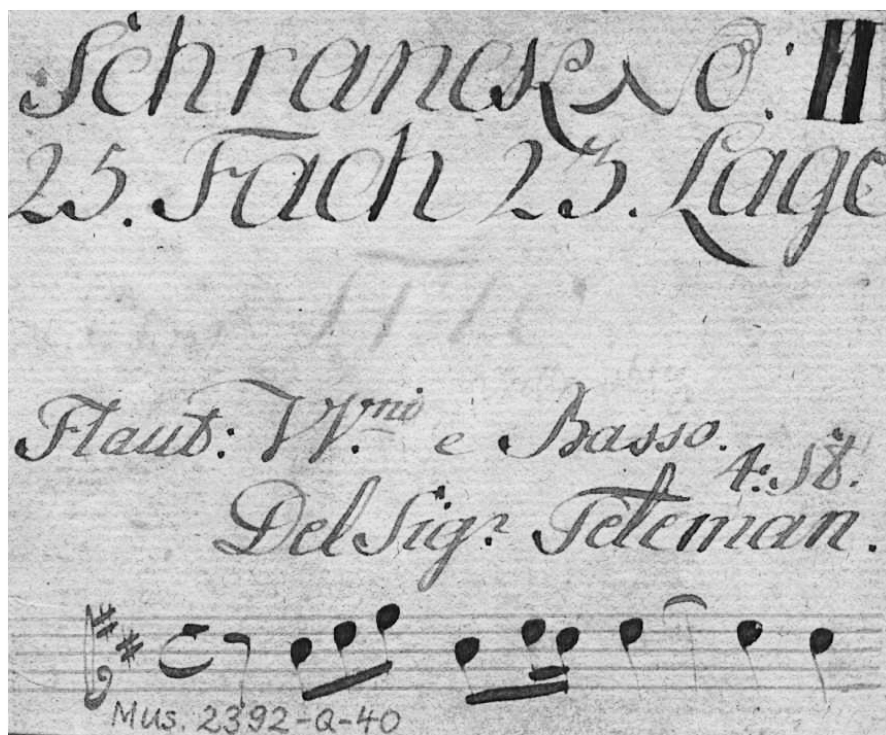 Schranck No: II
25. Fach 23. Lage
Flaut: VV.ni e Basso.
4: St.
Del Sigr. Teleman.
Mus. 2392-Q-40